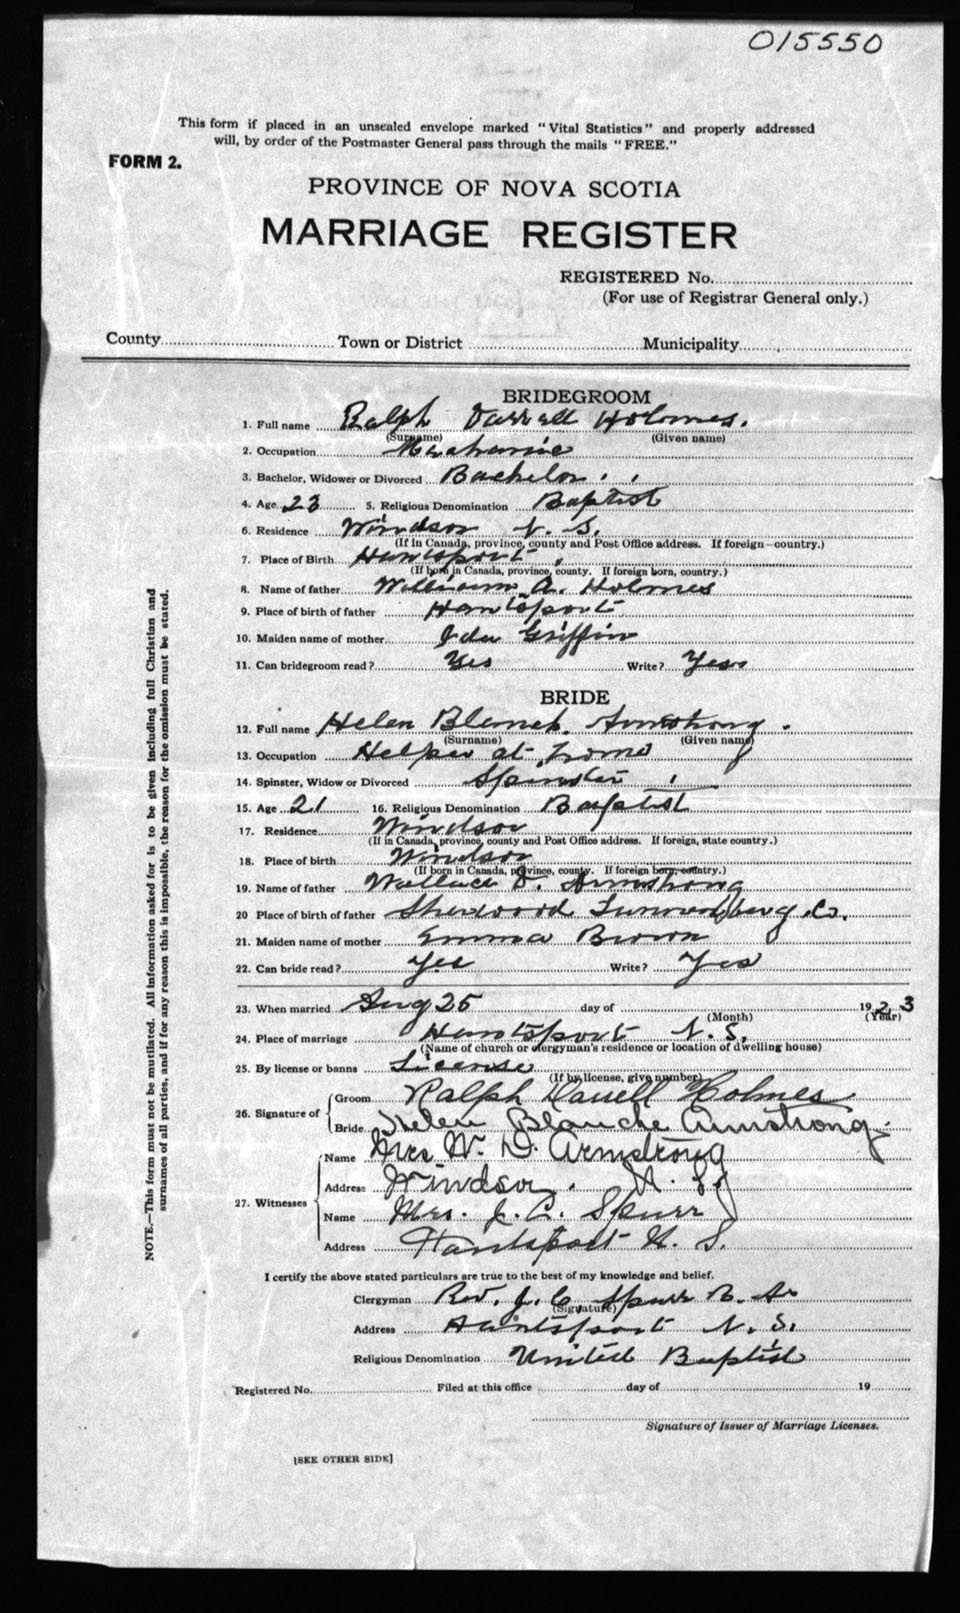 015550
This form if placed in an unsealed envelope marked "Vital Statistics" and properly addressed
will, by order of the Postmaster General pass through the mails "FREE."
FORM 2.
PROVINCE OF NOVA SCOTIA
MARRIAGE REGISTER
REGISTERED No.
(For use of Registrar General only.)
County Town or District Municipality
BRIDEGROOM
1. Full name Ralph Darrell Holmes.
(Surname) (Given name)
2. Occupation Mechanic
3. Bachelor, Widower or Divorced Bachelor
4. Age 23 5. Religious Denomination Baptist
6. Residence Windsor N. S.
(If in Canada, province, county and Post Office address. If foreign—country.)
7. Place of Birth Hantsport
(If born in Canada, province, county. If foreign born, country.)
8. Name of father William A. Holmes
9. Place of birth of father Hantsport
10. Maiden name of mother Ida Griffin
11. Can bridegroom read? Yes Write? Yes
BRIDE
12. Full name Helen Blanch Armstrong.
(Surname) (Given name)
13. Occupation Helper at home
14. Spinster, Widow or Divorced Spinster
15. Age 21 16. Religious Denomination Baptist
17. Residence Windsor
(If in Canada, province, county and Post Office address. If foreign, state country.)
18. Place of birth Windsor
(If born in Canada, province, county. If foreign born, country.)
19. Name of father Wallace D. Armstrong
20 Place of birth of father Sherwood Lunenberg Co.
21. Maiden name of mother Emma Brown
22. Can bride read? Yes Write? Yes
23. When married Aug 25 day of 1923
(Month) (Year)
24. Place of marriage Hantsport N. S.
(Name of church or clergyman's residence or location of dwelling house)
25. By license or banns License
(If by license, give number)
26. Signature of Groom Ralph Darrell Holmes
Bride Helen Blanche Armstrong.
27. Witnesses Name Mrs W. D. Armstrong
Address Windsor. N. S.
Name Mrs. J. C. Spurr
Address Hantsport N. S.
I certify the above stated particulars are true to the best of my knowledge and belief.
Clergyman Rev. J. C. Spurr
(Signature)
Address Hantsport N. S.
Religious Denomination United Baptist
Registered No. Filed at this office day of 19
Signature of Issuer of Marriage Licenses.
[SEE OTHER SIDE]
NOTE.—This form must not be mutilated. All information asked for is to be given including full Christian and
surnames of all parties, and if for any reason this is impossible, the reason for the omission must be stated.